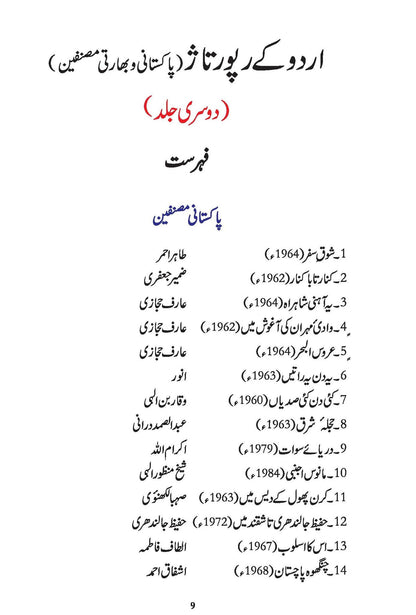 اردو کے رپورتاژ (پاکستانی و بھارتی مصنفین)
(دوسری جلد)
فہرست
پاکستانی مصنفین
1۔ شوق سفر (1964ء) طاہر احمر
2۔ کنار تا بکنار (1962ء) ضمیر جعفری
3۔ یہ آہنی شاہراہ (1964ء) عارف حجازی
4۔ وادیٔ مہران کی آغوش میں (1962ء) عارف حجازی
5۔ عروس البحر (1964ء) عارف حجازی
6۔ یہ دن یہ راتیں (1963ء) انور
7۔ کئی دن کئی صدیاں (1960ء) وقار بن الہی
8۔ حجلۂ شرق (1963ء) عبدالصمد درانی
9۔ دریائے سوات (1979ء) اکرام اللہ
10۔ مانوس اجنبی (1984ء) شیخ منظور الہی
11۔ کرن پھول کے دیس میں (1963ء) صہبا لکھنوی
12۔ حفیظ جالندھری تاشقند میں (1972ء) حفیظ جالندھری
13۔ اس کا اسلوب (1967ء) الطاف فاطمہ
14۔ چنگھوہ پاچستان (1968ء) اشفاق احمد
9